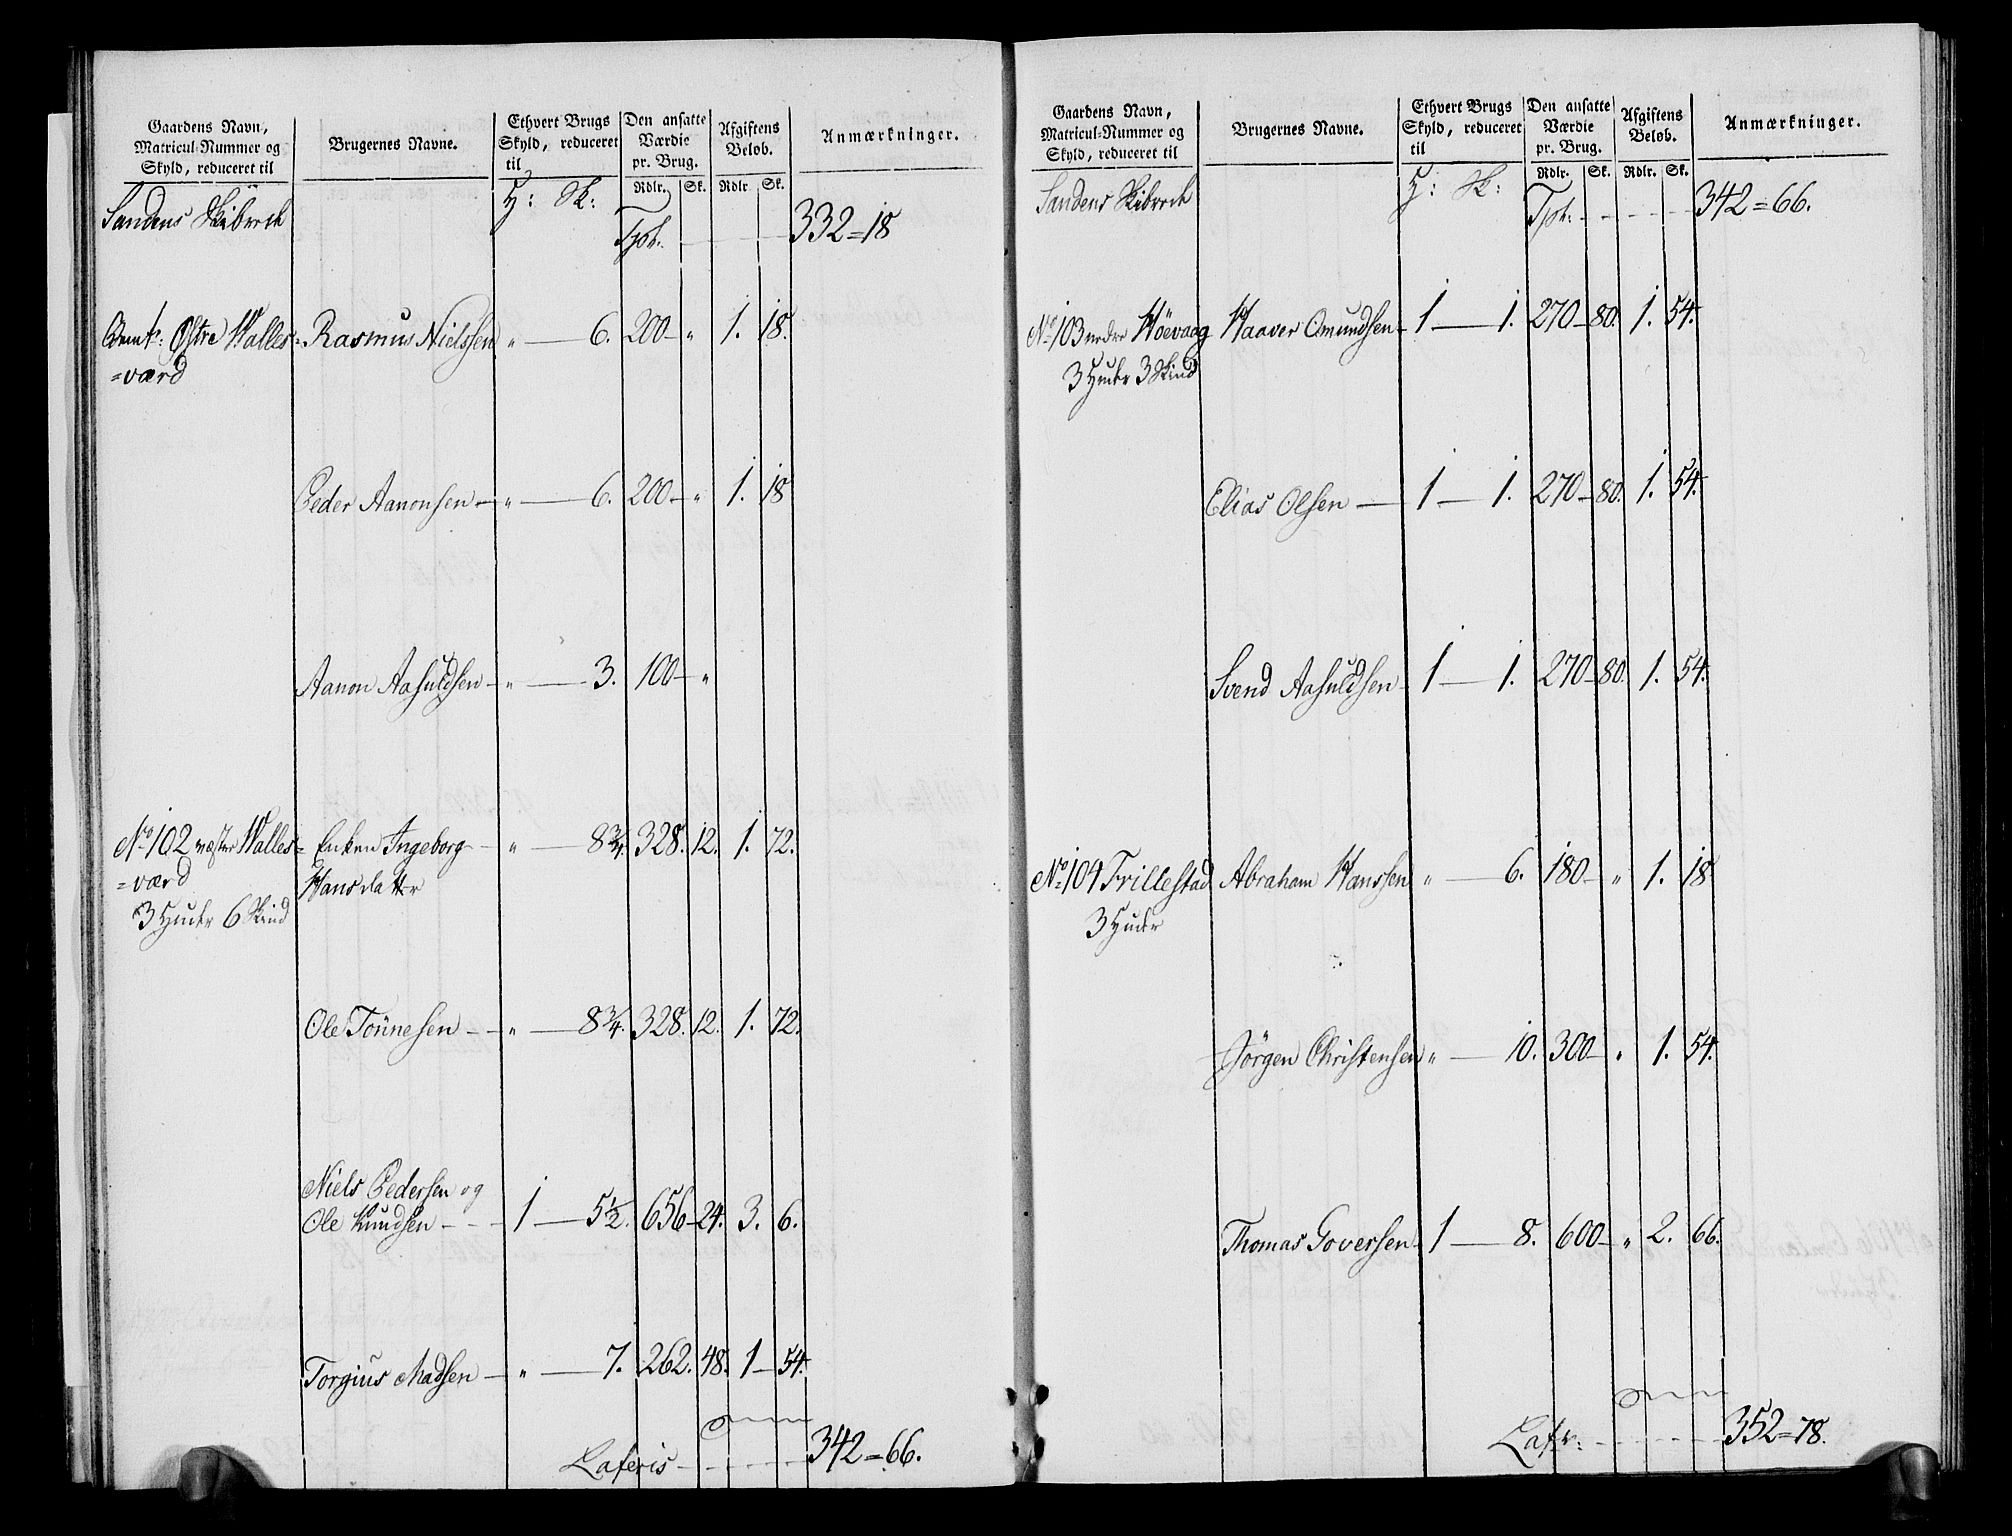 Gaardens Navn,
Matricul-Nummer og
Skyld, reduceret til
Brugernes Navne.
Ethvert Brugs
Skyld, reduceret
til
Den ansatte
Værdie
pr. Brug.
Rdlr. Sk.
Afgiftens
Beløb.
Rdlr. Sk.
Anmærkninger.
H: Sk:
Sandens Skibrede
Tpt. 332=18
Østre Walles- Rasmus Nielssen „ 6. 200 „ 1. 18.
=værd
Peder Aanonsen „ 6. 200 „ 1. 18
Aanon Aasuldsen „ 3. 100 „
No 102 Walles= Enken Ingeborg „ 8 3/4. 328. 12. 1. 72.
=værd Hansdatter
3 Huder 6 Skind
Ole Tönnesen „ 8 3/4. 328. 12. 1. 72.
Niels Pedersen og
Ole Knudsen 1 5 1/2. 656 24. 3. 6.
Torgius Madsen „ 7. 262. 48. 1 54.
Lateris 342=66.
Gaardens Navn,
Matricul-Nummer og
Skyld, reduceret til
Brugernes Navne.
Ethvert Brugs
Skyld, reduceret
til
Den ansatte
Værdie
pr. Brug.
Rdlr. Sk.
Afgiftens
Beløb.
Rdlr. Sk.
Anmærkninger.
H: Sk:
Sandens Skibrede
Tpt: 342=66.
No 103 nedre Höevaag Haaver Omundsen 1 1. 270 80. 1. 54.
3 Huder 3 Skind
Elias Olsen 1 1. 270 80. 1. 54.
Svend Aasuldsen 1 1. 270 80. 1. 54.
No 104 Trillestad Abraham Hanssen „ 6. 180 „ 1. 18
3 Huder
Jörgen Christensen „ 10. 300 „ 1. 54.
Thomas Goversen 1 8. 600 „ 2. 66.
Latr: 352=78.